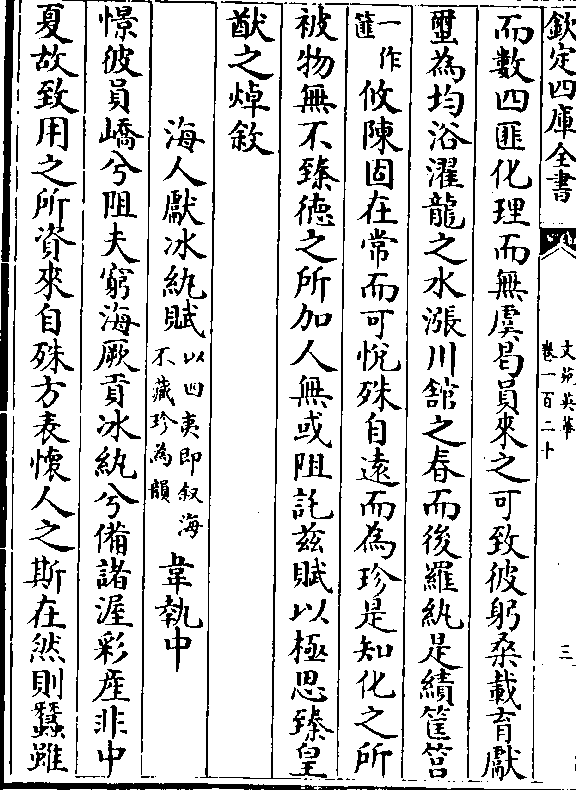 欽定四庫全書
文苑英華
卷一百二十
三
而數四匪化理而無虞曷員來之可致彼躬桑載育獻
璽為均浴濯龍之水漲川館之春而後羅紈是績筐筥
一作筐攸陳固在常而可悦殊自遠而為珍是知化之所
被物無不臻徳之所加人無或阻託兹賦以極思臻皇
猷之焯敘
海人獻冰紈賦以四夷即叙海不藏珍為韻 韋執中
憬彼員嶠兮阻夫窮海厥貢冰紈兮備諸渥彩産非中
夏故致用之所資來自殊方表懐人之斯在然則蠶雖